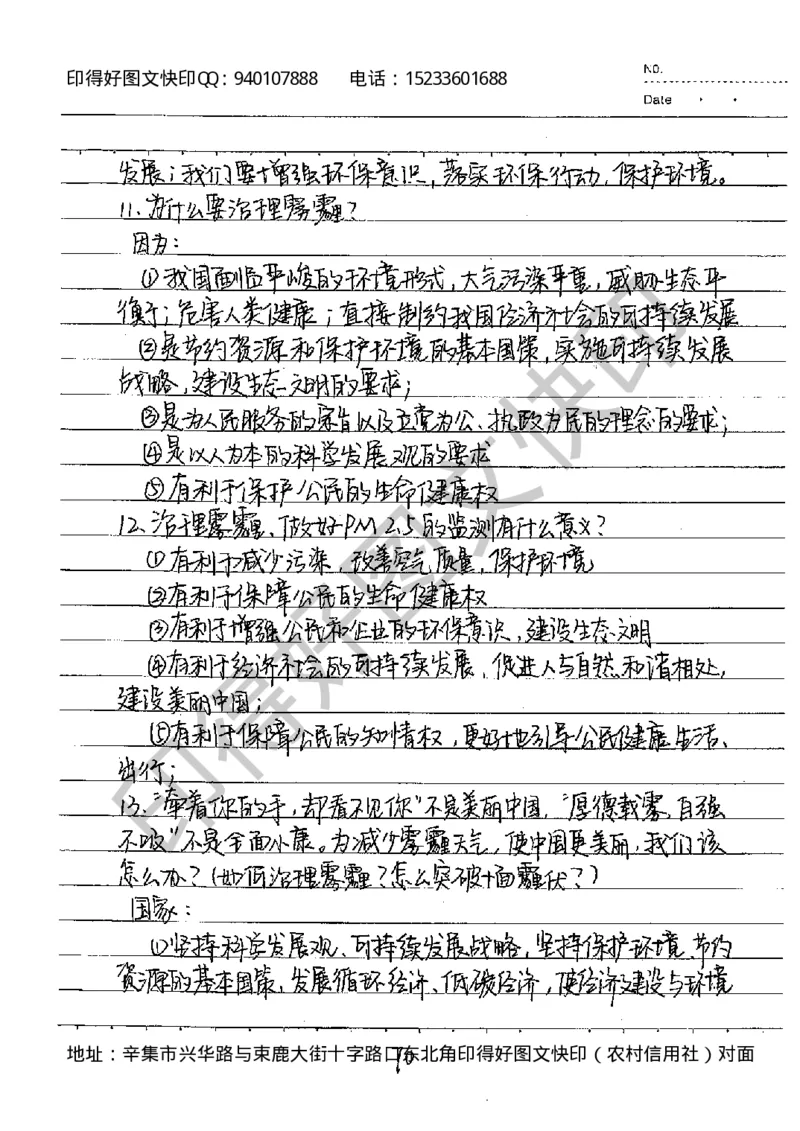 印得好图文快印QQ：940107888 电话：15233601688
NO.
Date
发展；我们要增强环保意识，落实环保行动，保护环境。
11、为什么要治理雾霾？
因为：
①我国面临严峻的环境形式，大气污染严重，威胁生态平
衡；危害人类健康；直接制约我国经济社会的可持续发展
②是节约资源和保护环境的基本国策，实施可持续发展
战略，建设生态文明的要求；
③是为人民服务的宗旨以及立党为公、执政为民的理念的要求；
④是以人为本的科学发展观的要求
⑤有利于保护公民的生命健康权
12、治理雾霾、做好PM 2.5的监测有什么意义？
①有利于减少污染，改善空气质量，保护环境
②有利于保障公民的生命健康权
③有利于增强公民和企业的环保意识，建设生态文明
④有利于经济社会的可持续发展，促进人与自然和谐相处，
建设美丽中国；
⑤有利于保障公民的知情权，更好地引导公民健康生活、
出行；
13、“牵着你的手，却看不见你”不是美丽中国，“厚德载雾，自强
不吸”不是全面小康。为减少雾霾天气，使中国更美丽，我们该
怎么办？（如何治理雾霾？怎么突破十面霾伏？）
国家：
①坚持科学发展观、可持续发展战略，坚持保护环境、节约
资源的基本国策，发展循环经济、低碳经济，使经济建设与环境
地址：辛集市兴华路与束鹿大街十字路口东北角印得好图文快印（农村信用社）对面
70
印得好图文快印